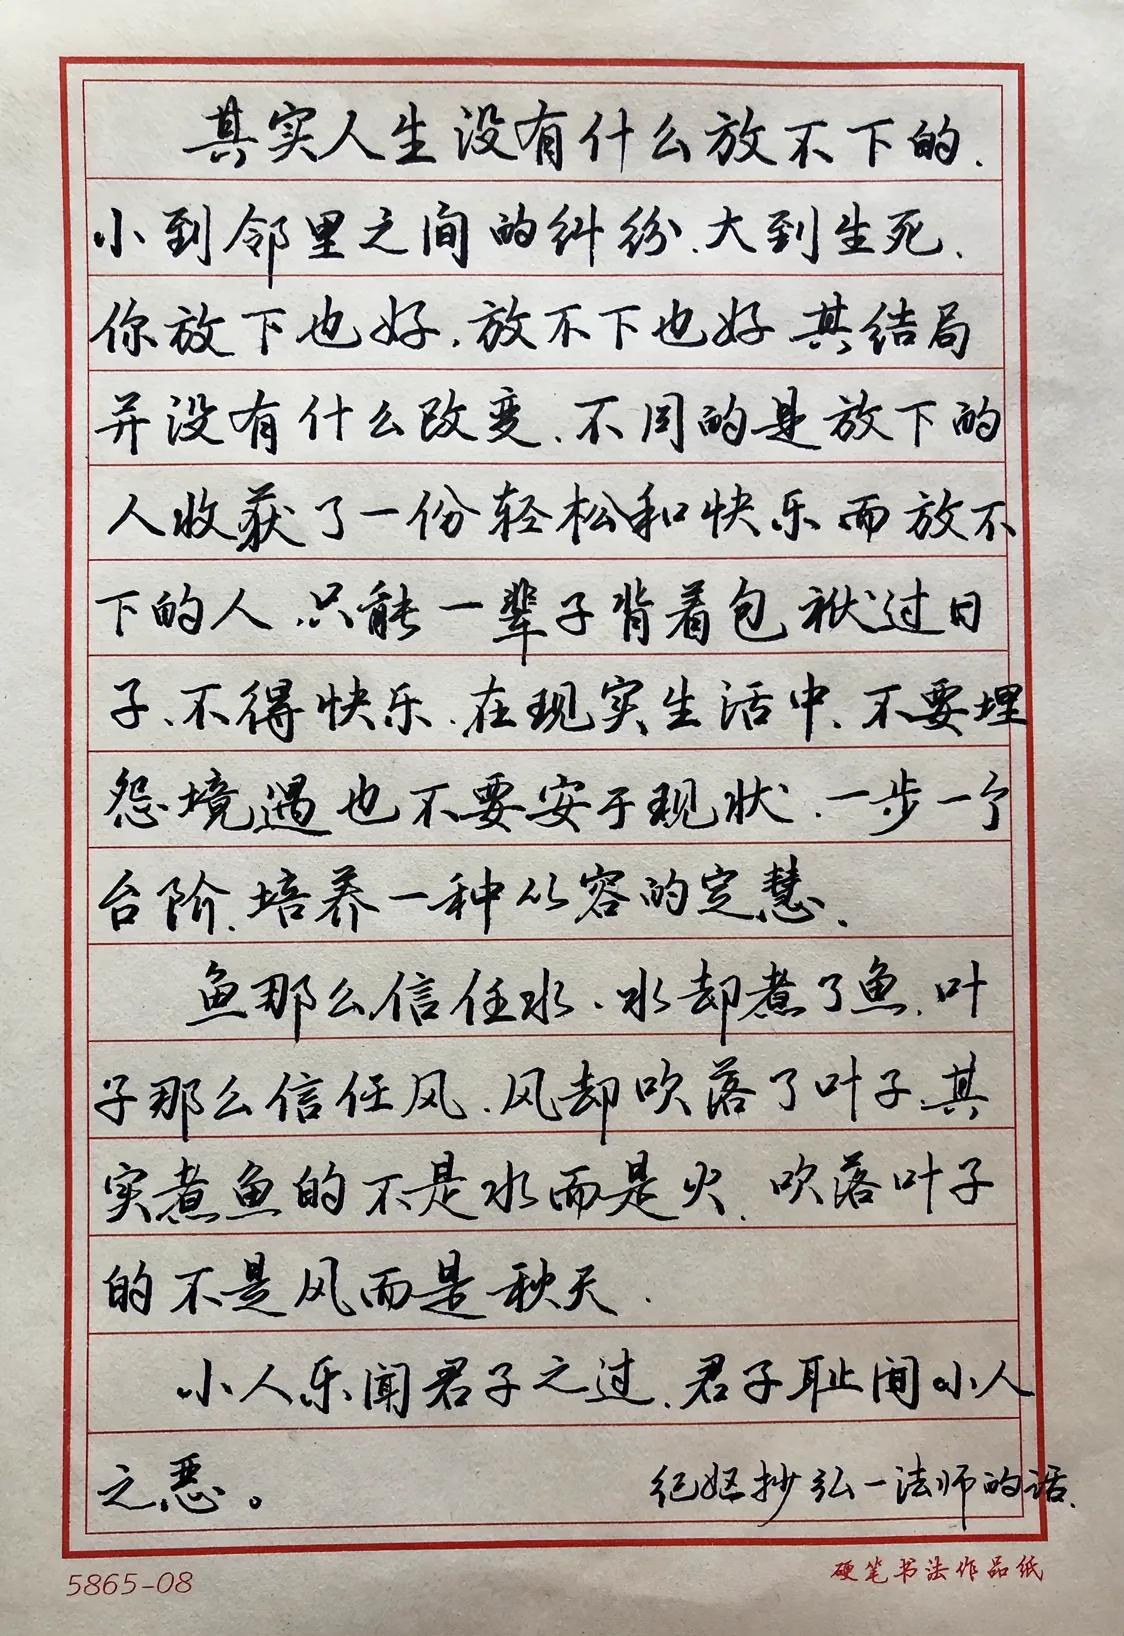 其实人生没有什么放不下的.
小到邻里之间的纠纷.大到生死.
你放下也好.放不下也好.其结局
并没有什么改变.不同的是放下的
人收获了一份轻松和快乐而放不
下的人.只能一辈子背着包袱过日
子、不得快乐.在现实生活中.不要埋
怨境遇也不要安于现状.一步一个
台阶.培养一种从容的定慧.
鱼那么信任水.水却煮了鱼.叶
子那么信任风.风却吹落了叶子.其
实煮鱼的不是水而是火.吹落叶子
的不是风而是秋天.
小人乐闻君子之过.君子耻闻小人
之恶。
抄弘一法师的话.
5865-08
硬笔书法作品纸